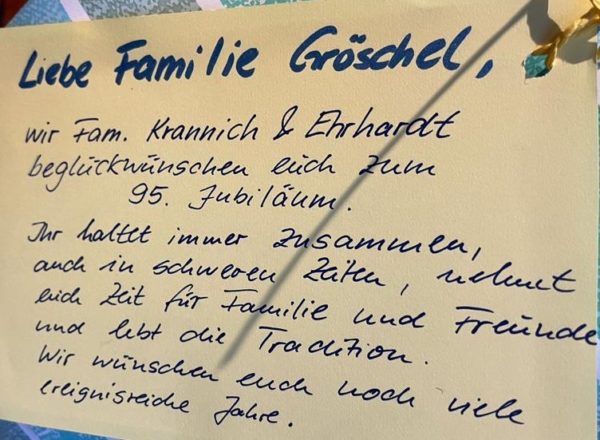 Liebe Familie Gröschel,
wir Fam. Krannich & Ehrhardt
beglückwünschen euch zum
95. Jubiläum.
Ihr haltet immer zusammen,
auch in schweren Zeiten, nehmt
euch Zeit für Familie und Freunde
und lebt die Tradition.
Wir wünschen euch noch viele
ereignisreiche Jahre.